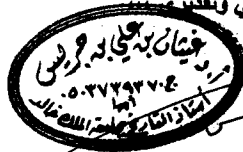 أ.د. غيثان بن علي بن جريس
ج: ٠٥٠٣٧٣٩٣٧٠
أبها
أستاذ التاريخ جامعة الملك خالد